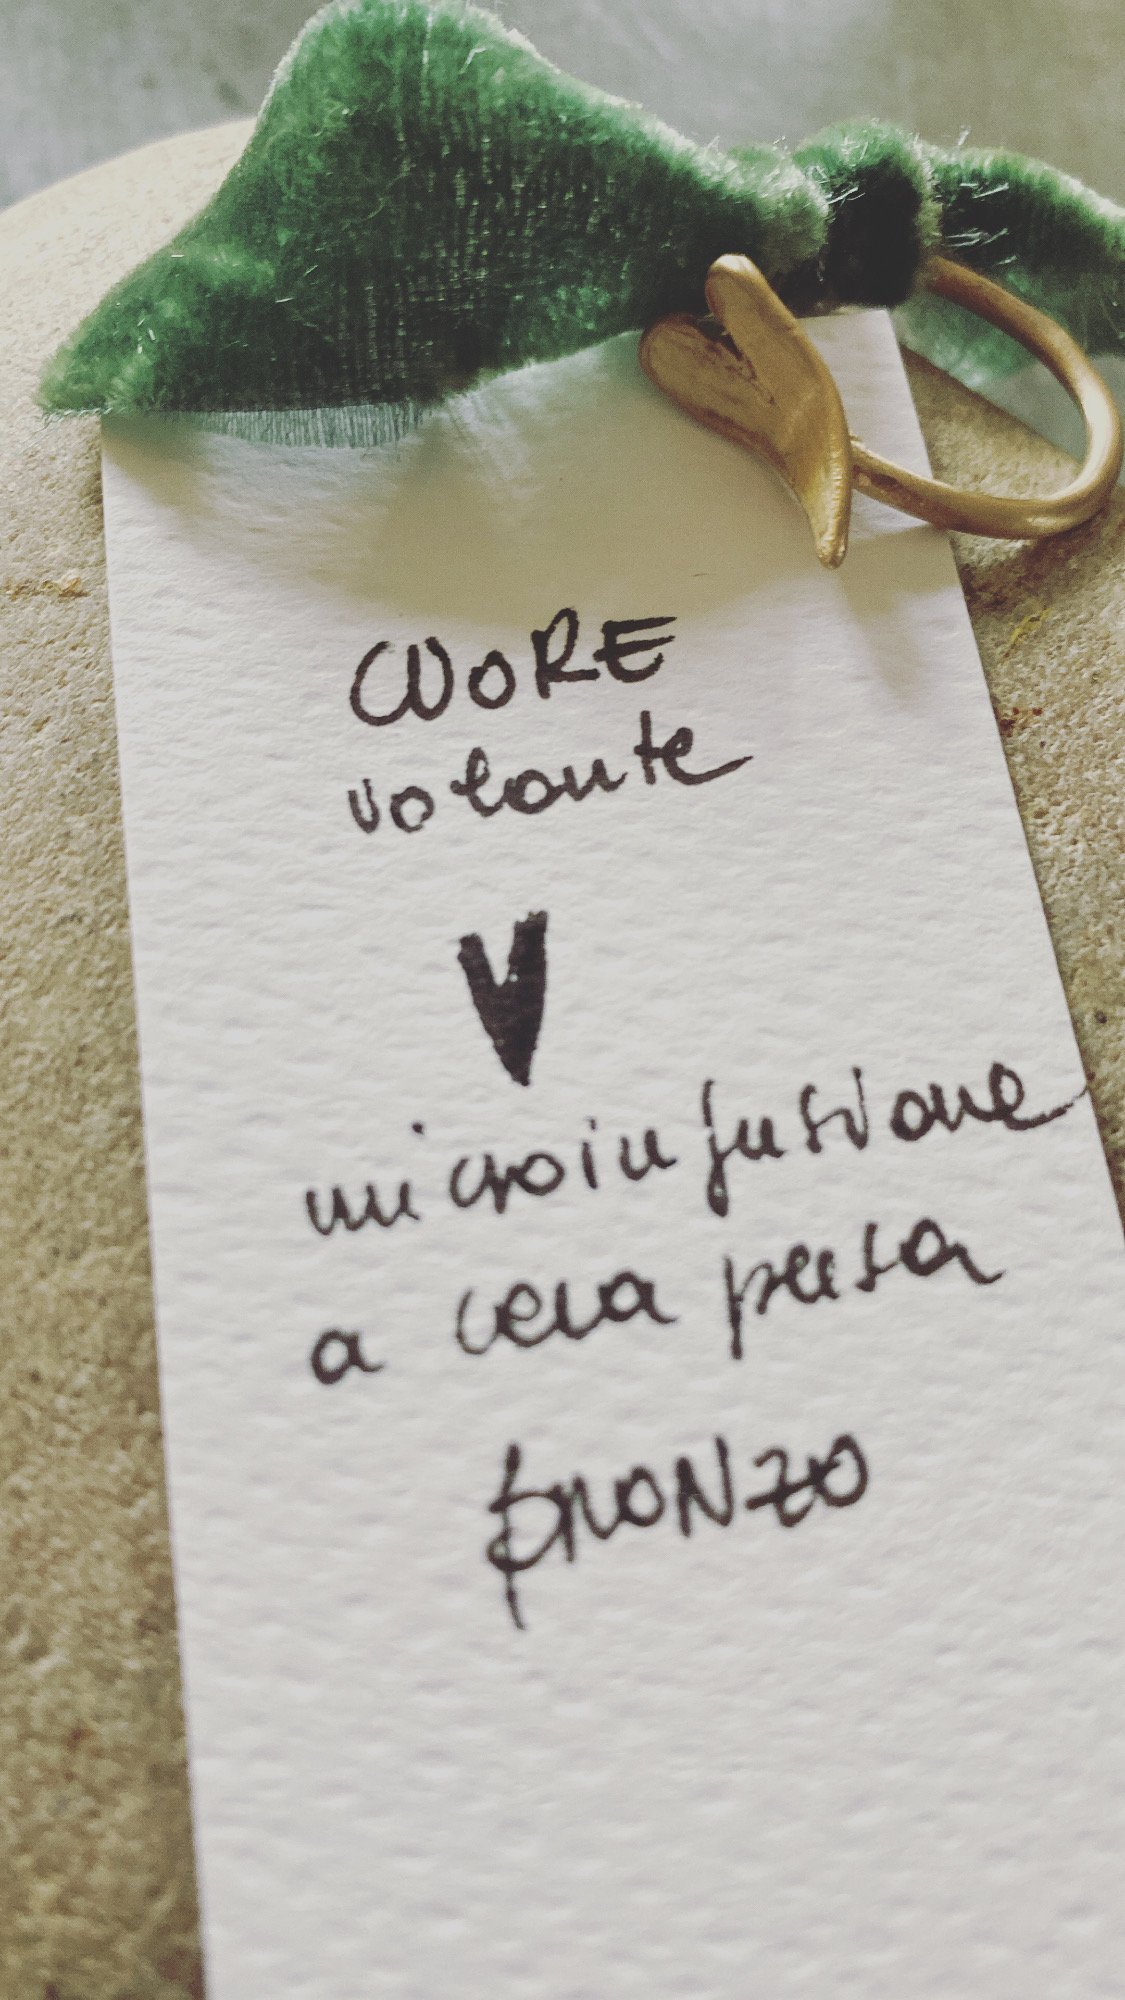 CUORE
volante
microinfusione
a cera persa
BRONZO